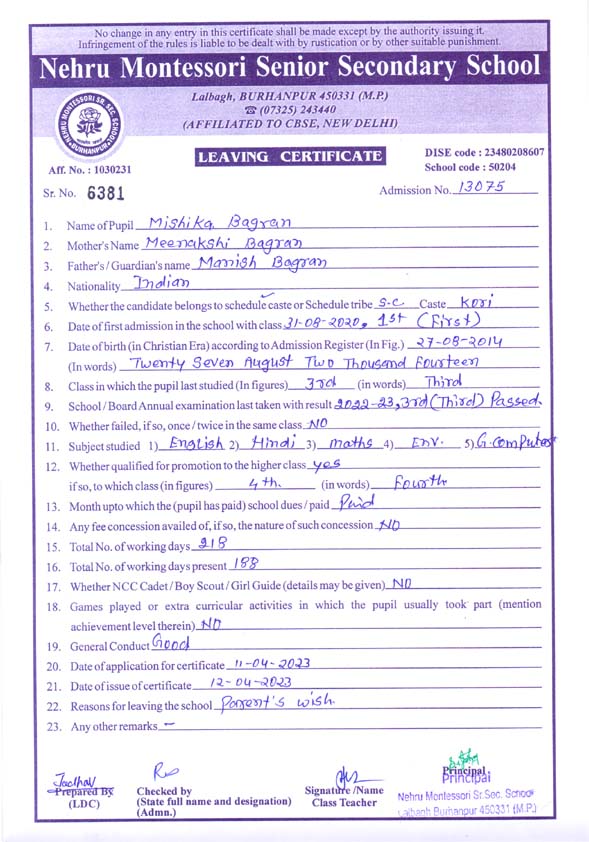 No change in any entry in this certificate shall be made except by the authority issuing it.
Infringement of the rules is liable to be dealt with by rustication or by other suitable punishment.
Nehru Montessori Senior Secondary School
NEHRU MONTESSORI SR. SEC. SCHOOL
BURHANPUR
Lalbagh, BURHANPUR 450331 (M.P.)
☎ (07325) 243440
(AFFILIATED TO CBSE, NEW DELHI)
LEAVING CERTIFICATE
DISE code : 23480208607
School code : 50204
Aff. No. : 1030231
Sr. No. 6381
Admission No. 13075
1. Name of Pupil Mishika Bagran
2. Mother's Name Meenakshi Bagran
3. Father's / Guardian's name Manish Bagran
4. Nationality Indian
5. Whether the candidate belongs to schedule caste or Schedule tribe S.C Caste Kori
6. Date of first admission in the school with class 31-08-2020, 1st (First)
7. Date of birth (in Christian Era) according to Admission Register (In Fig.) 27-08-2014
(In words) Twenty Seven August Two Thousand Fourteen
8. Class in which the pupil last studied (In figures) 3rd (in words) Third
9. School / Board Annual examination last taken with result 2022-23, 3rd (Third) Passed.
10. Whether failed, if so, once / twice in the same class NO
11. Subject studied 1) English 2) Hindi 3) maths 4) Env. 5) G. Computer
12. Whether qualified for promotion to the higher class yes
if so, to which class (in figures) 4th. (in words) Fourth
13. Month upto which the (pupil has paid) school dues / paid Paid
14. Any fee concession availed of, if so, the nature of such concession NO
15. Total No. of working days 218
16. Total No. of working days present 188
17. Whether NCC Cadet / Boy Scout / Girl Guide (details may be given) NO
18. Games played or extra curricular activities in which the pupil usually took part (mention
achievement level therein) NO
19. General Conduct Good
20. Date of application for certificate 11-04-2023
21. Date of issue of certificate 12-04-2023
22. Reasons for leaving the school Parent's wish.
23. Any other remarks —
Jadhav
Prepared By
(LDC)
Checked by
(State full name and designation)
(Admn.)
Signature /Name
Class Teacher
Principal
Principal
Nehru Montessori Sr.Sec. School
Lalbagh Burhanpur 450331 (M.P.)